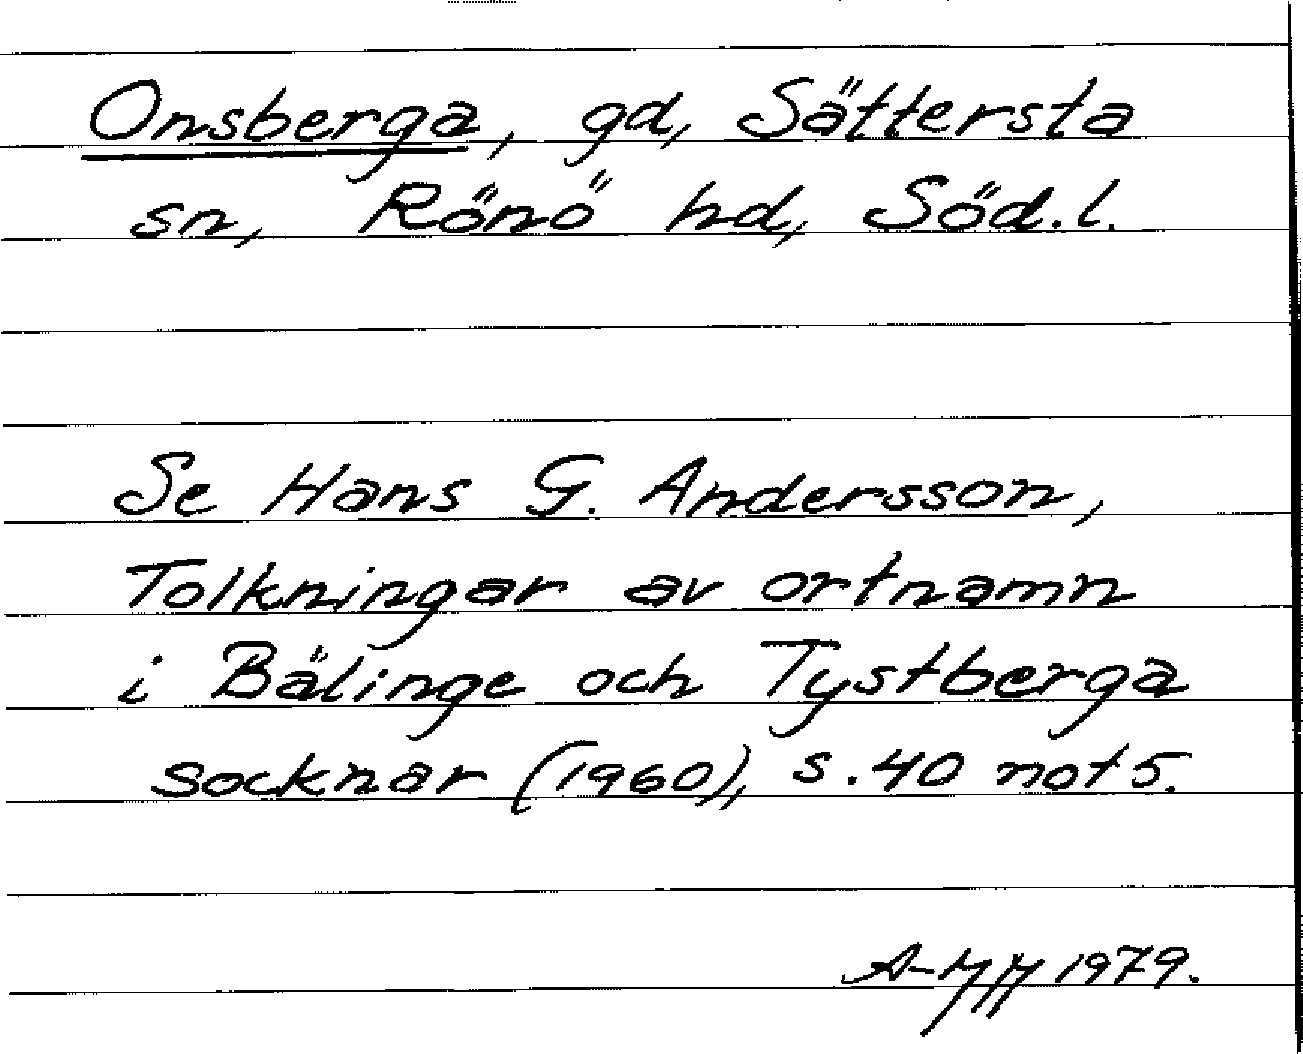 Onsberga, gd, Sättersta
sn, Rönö hd, Söd.l.
Se Hans G. Andersson,
Tolkningar av ortnamn
i Bälinge och Tystberga
socknar (1960), s. 40 not 5.
1979.